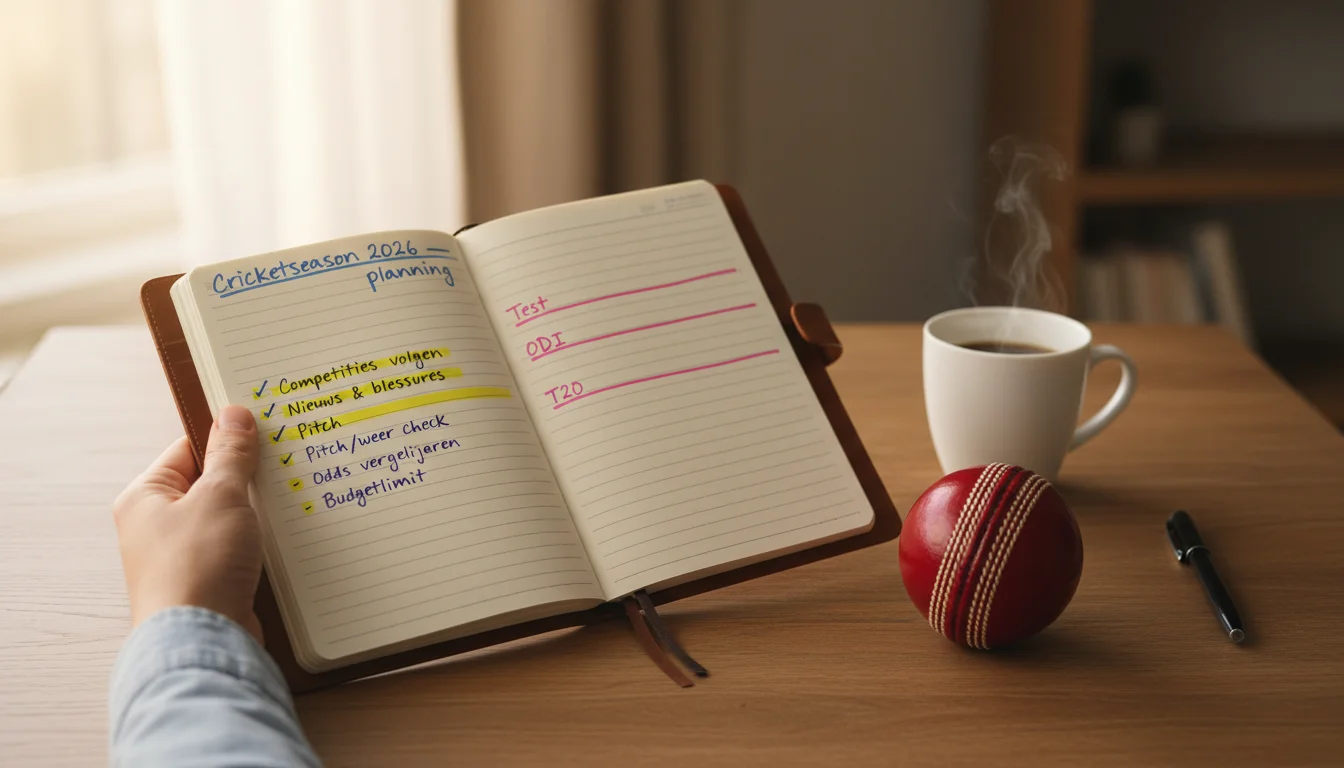 Cricketseason 2026 —
planning
✓ Competities volgen
✓ Nieuws & blessures
✓ Pitch
✓ Pitch/weer check
Odds vergelijaren
Budgetlimit
Test
ODI
T20